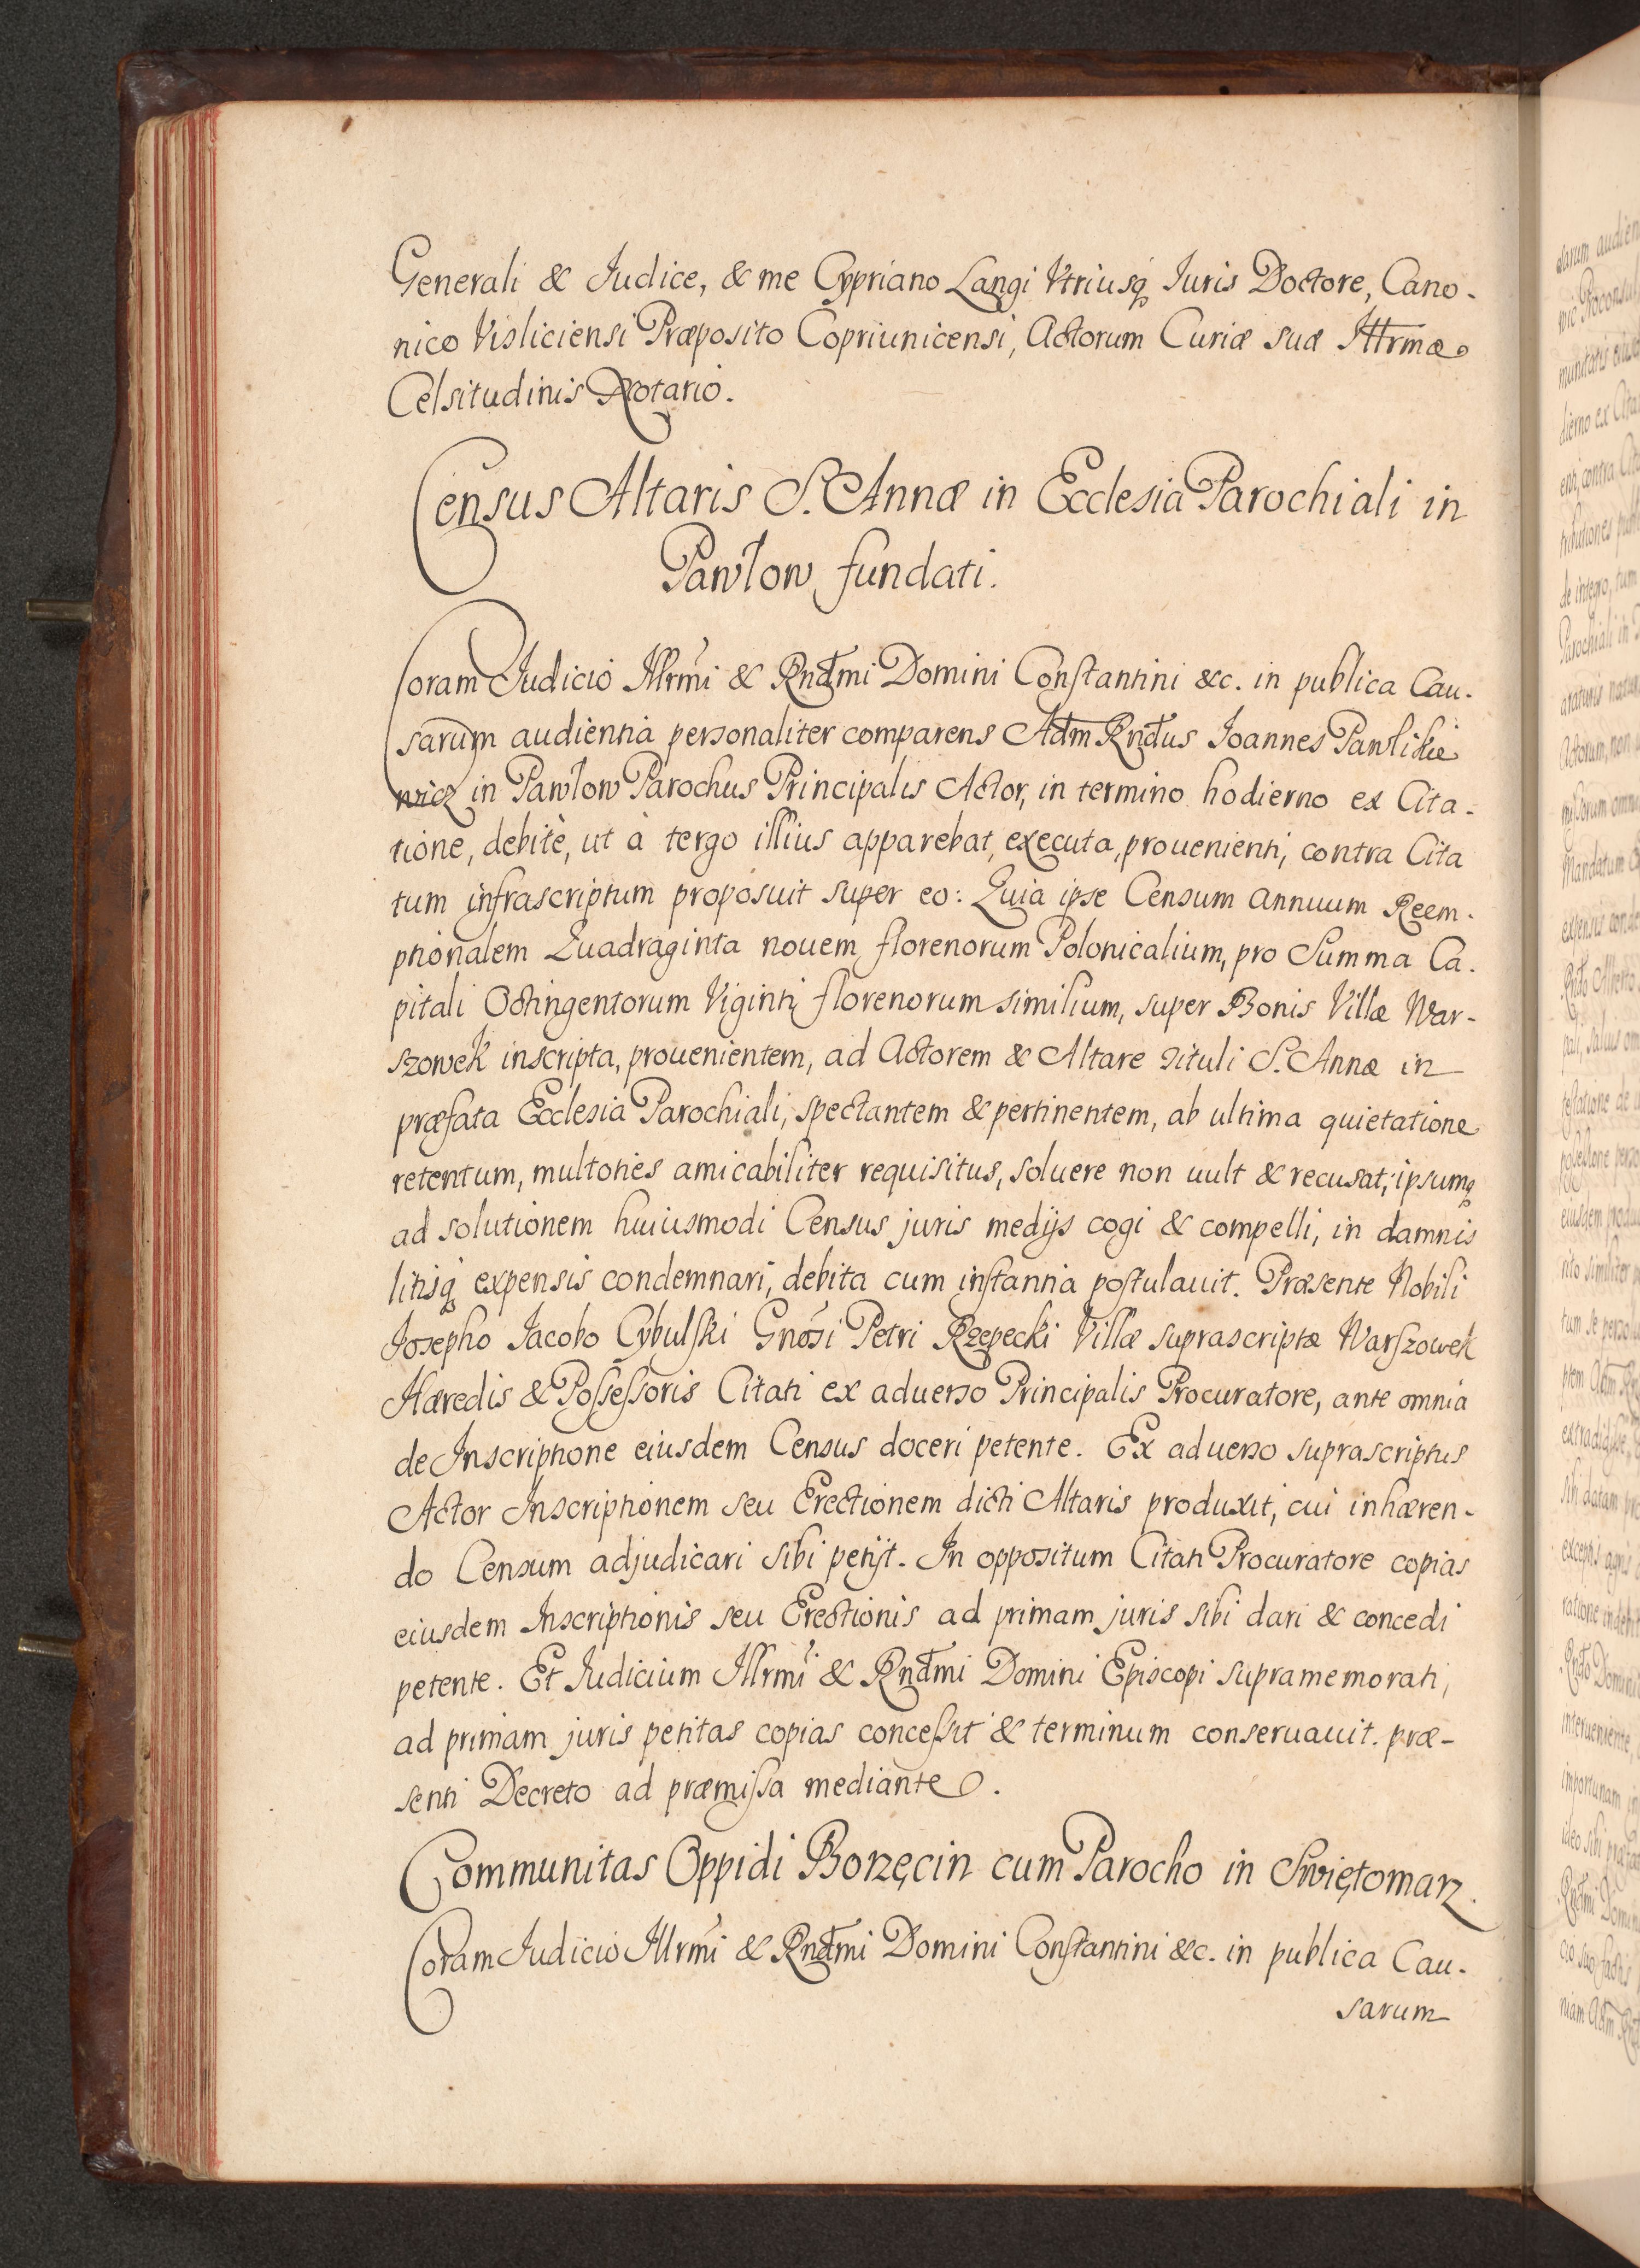 Generali & Judice, & me Cypriano Langi Vtriusq́ Iuris Doctore, Cano-
nico Visliciensi Præposito Copriunicensi, Actorum Curiæ suæ Illrmæ
Celsitudinis Notario.
Census Altaris S. Annæ in Ecclesia Parochiali in
Pawłow fundati.
Coram Judicio Illrmi & Rndmi Domini Constantini &c. in publica Cau-
sarum audientia personaliter comparens Adm Rndus Ioannes Pawlikie
wicz in Pawłow Parochus Principalis Actor, in termino hodierno ex Cita-
tione, debitè, ut à tergo illius apparebat, executa, prouenienti, contra Cita
tum infrascriptum proposuit super eo: Quia ipse Censum annuum Reem-
ptionalem Quadraginta nouem florenorum Polonicalium, pro Summa Ca-
pitali Octingentorum Viginti florenorum similium, super Bonis Villæ War-
szowek inscripta, prouenientem, ad Actorem & Altare tituli S. Annæ in
præfata Ecclesia Parochiali, spectantem & pertinentem, ab ultima quietatione
retentum, multoties amicabiliter requisitus, soluere non uult & recusat; ipsumq́
ad solutionem huiusmodi Census juris medijs cogi & compelli, in damnis
litisq́ expensis condemnari, debita cum instantia postulauit. Præsente Nobili
Josepho Jacobo Cybulski Gnosi Petri Rzepecki Villæ suprascriptæ Warszowek
Hæredis & Possessoris Citati ex aduerso Principalis Procuratore, ante omnia
de Inscriptione eiusdem Census doceri petente. Ex aduerso suprascriptus
Actor Inscriptionem seu Erectionem dicti Altaris produxit, cui inhæren-
do Censum adjudicari sibi petijt. In oppositum Citati Procuratore copias
eiusdem Inscriptionis seu Erectionis ad primam juris sibi dari & concedi
petente. Et Judicium Illrmi & Rndmi Domini Episcopi supramemorati,
ad primam juris petitas copias concessit & terminum conseruauit. præ-
senti Decreto ad præmissa mediante.
Communitas Oppidi Borzęcin cum Parocho in Swiętomarz.
Coram Judicio Illrmi & Rndmi Domini Constantini &c. in publica Cau-
sarum